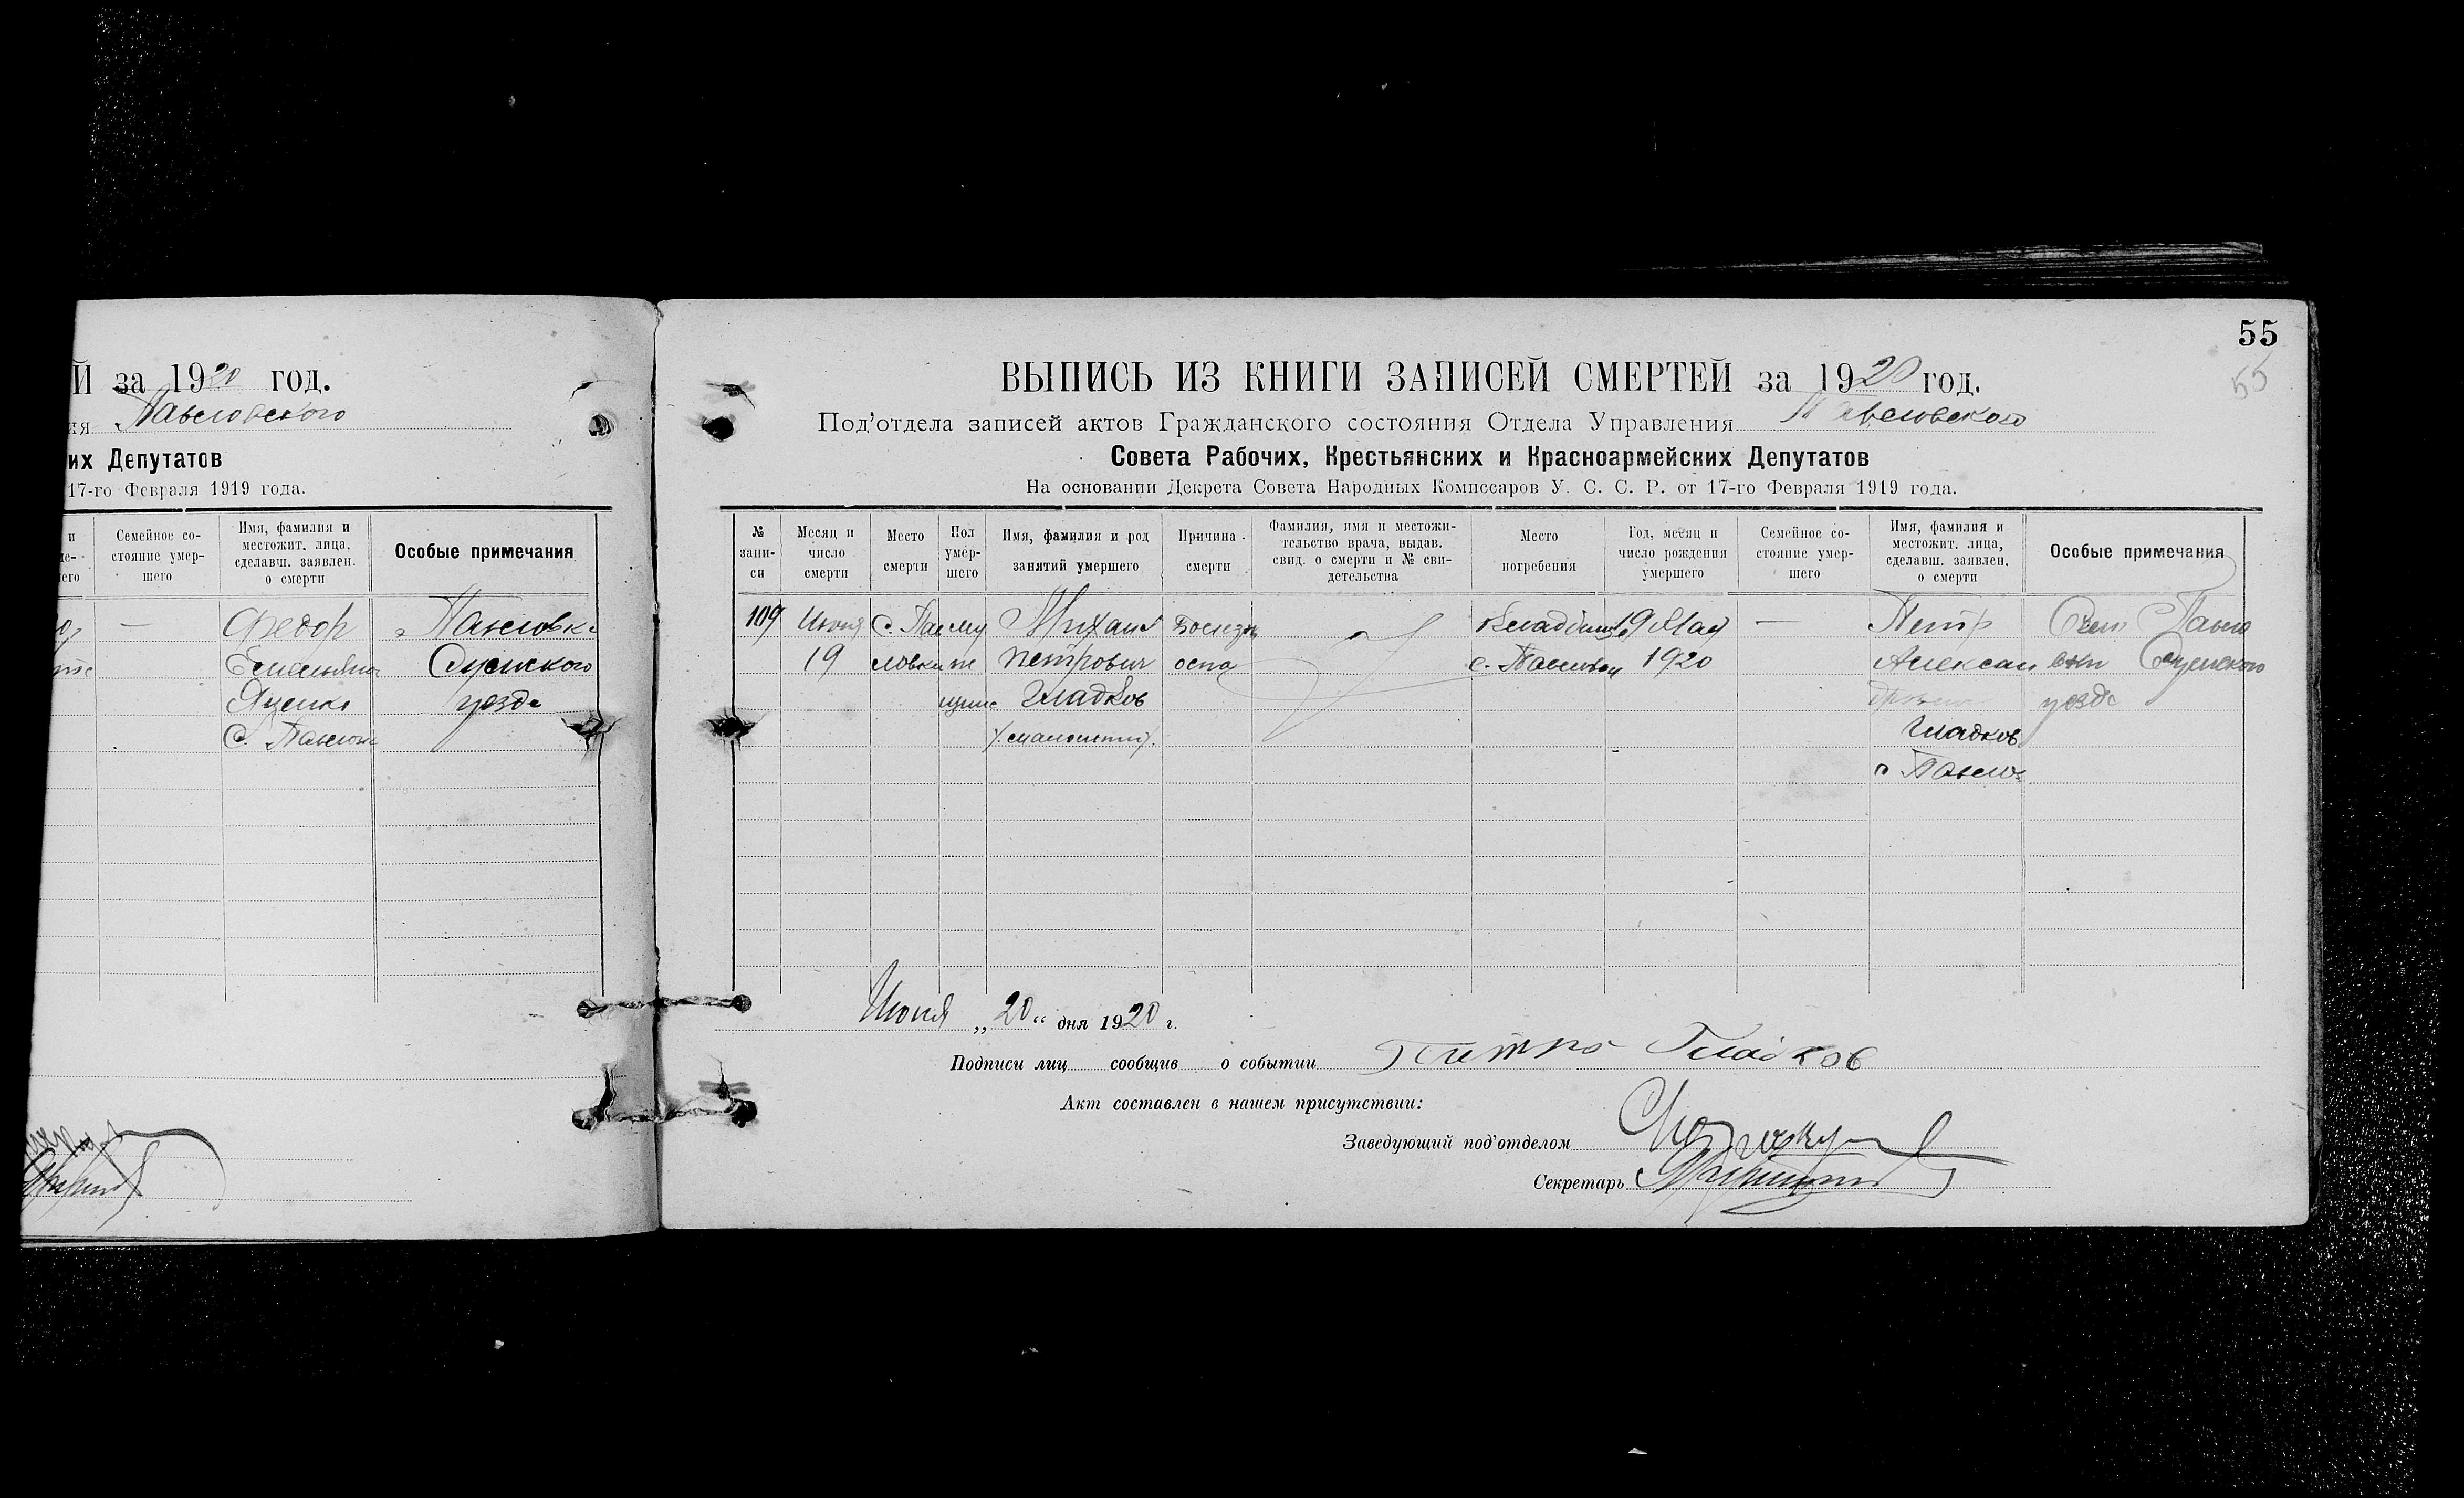 Й за 1920 год.
ия Павловского
их Депутатов
17-го Февраля 1919 года.
и
Семейное со-
стояние умер-
шего
Имя, фамилия и
местожит. лица,
сделавш. заявлен.
о смерти
Особые примечания
—
Федор
Яценко
с. Павловк
Павловка
Сумского
уезда
55
55
ВЫПИСЬ ИЗ КНИГИ ЗАПИСЕЙ СМЕРТЕЙ за 1920 год.
Под'отдела записей актов Гражданского состояния Отдела Управления Павловского
Совета Рабочих, Крестьянских и Красноармейских Депутатов
На основании Декрета Совета Народных Комиссаров У. С. С. Р. от 17-го Февраля 1919 года.
№
запи-
си
Месяц и
число
смерти
Место
смерти
Пол
умер-
шего
Имя, фамилия и род
занятий умершего
Причина
смерти
Фамилия, имя и местожи-
тельство врача, выдав.
свид. о смерти и № сви-
детельства
Место
погребения
Год, месяц и
число рождения
умершего
Семейное со-
стояние умер-
шего
Имя, фамилия и
местожит. лица,
сделавш. заявлен.
о смерти
Особые примечания
109
Июня
19
с. Пав
ловка
му
ж
щина
Михаил
Петрович
Гладков
Болезнь
оспа
Кладбище
с. Павловки
19 Мая
1920
—
Петр
Алексан
дрович
Гладков
с Павло
Села Павло
вки Сумского
уезда
Июня „20“ дня 1920 г.
Подписи лиц сообщив о событии Гладков
Акт составлен в нашем присутствии:
Заведующий под'отделом
Секретарь